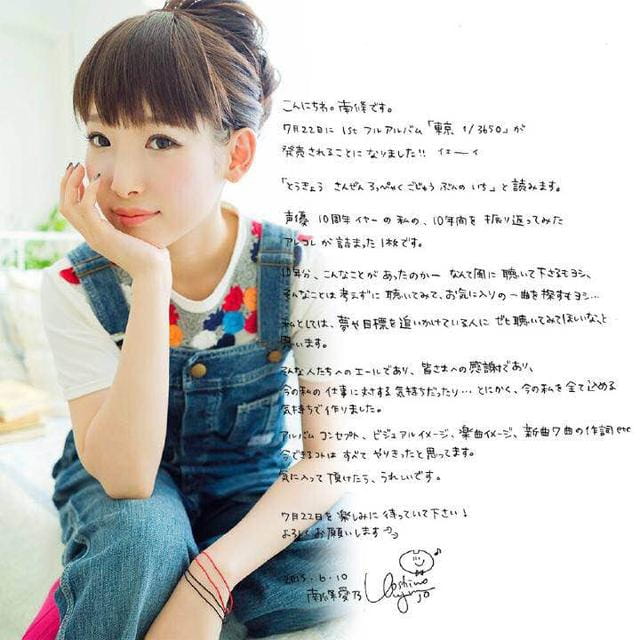 こんにちわ。南條です。
7月22日に 1st フルアルバム「東京 1/3650」が
発売されることに なりました!! イェーーイ
「とうきょう さんぜん ろっぴゃく ごじゅう ぶんの いち」と 読みます。
声優 10周年 イヤーの 私の、10年間を 振り返ってみた
アレコレが 詰まった 1枚です。
10年分、こんなことが あったのかー なんて風に 聴いて下さるもヨシ、
そんなことは 考えずに 聴いてみて、お気に入りの 一曲を 探すもヨシ…
私としては、夢や目標を 追いかけている人に ぜひ 聴いてみてほしいな、と
思います。
そんな人たちへのエールであり、皆さまへの 感謝であり、
今の私の 仕事に対する 気持ちだったり… とにかく、今の私を 全て込める
気持ちで 作りました。
アルバム コンセプト、ビジュアルイメージ、楽曲イメージ、新曲7曲の作詞 etc
今できるコトは すべて やりきったと 思ってます。
気に入って 頂けたら、うれしいです。
7月22日を 楽しみに 待っていて 下さい!
よろしく お願いします
2015.6.10
南條愛乃 Yoshino Nanjo